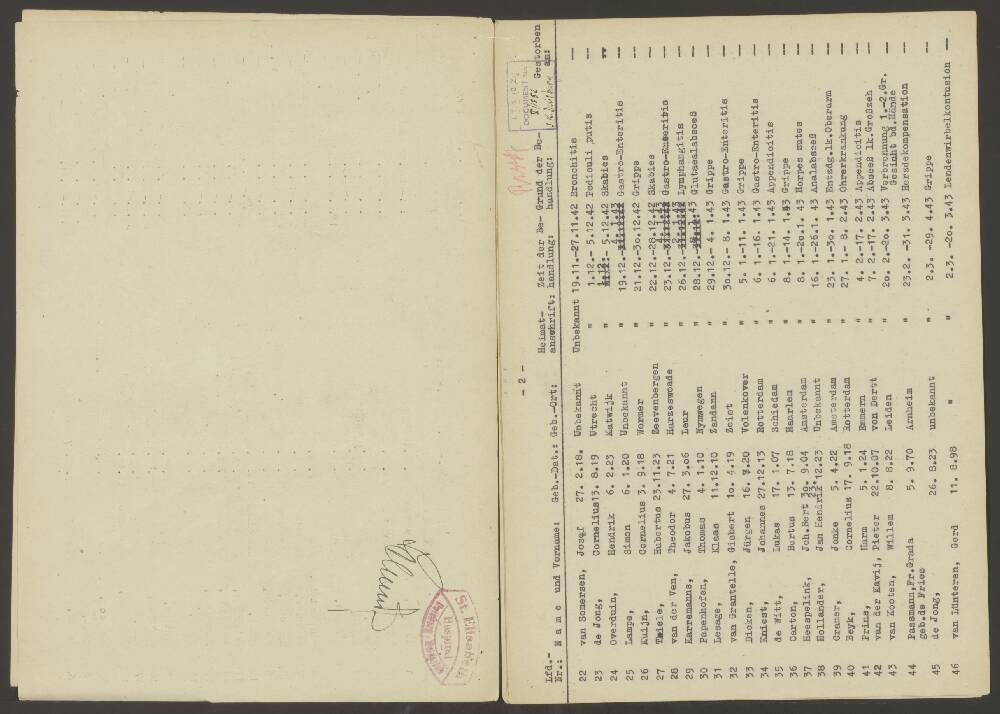 - 2 -
Lfd.- Heimat- Zeit der Be- Grund der Be- Gestorben
Nr.: N a m e und Vorname: Geb.-Dat.: Geb.-Ort: anschrift: handlung: handlung: am:
22 van Somersen, Josef 27. 2.18. Unbekannt Unbekannt 19.11.-27.11.42 Bronchitis —
23 de Jong, Cornelius 13. 8.19 Utrecht " 1.12.- 5.12.42 Pediculi putis —
24 Overduin, Hendrik 6. 2.23 Katwijk " 5.12.42 Skabies
25 Lampe, Simon 6. 1.20 Unbekannt " 19.12.- 4. 1.43 Gastro-Enteritis —
26 Kuijn, Cornelius 3. 9.18 Wormer " 21.12.-30.12.42 Grippe —
27 Thiele, Hubertus 23.11.23 Seevenbergen " 22.12.-28.12.42 Skabies —
28 van der Ven, Theodor 4. 7.21 Harzeswoade " 23.12.- 4. 1.43 Gastro-Enteritis —
29 Karremanns, Jakobus 27. 3.06 Leur " 26.12.- 2. 1.43 Lymphangitis —
30 Papenhofen, Thomas 4. 1.10 Nymwegen " 28.12.- 1.43 Glutaealabsceß —
31 Lesage, Klaas 11.12.10 Zandann " 29.12.- 4. 1.43 Grippe —
32 van Grantelle, Gisbert 10. 4.19 Zeist " 30.12.- 8. 1.43 Gastro-Enteritis —
33 Dicken, Jürgen 16. 7.20 Volenkover " 5. 1.-11. 1.43 Grippe —
34 Kniest, Johannes 27.12.13 Rotterdam " 6. 1.-16. 1.43 Gastro-Enteritis —
35 de Witt, Lukas 17. 1.07 Schiedam " 6. 1.-21. 1.43 Appendicitis —
36 Carton, Bertus 13. 7.18 Haarlem " 8. 1.-14. 1.43 Grippe —
37 Heespelink, Joh.Bert 30. 9.04 Amsterdam " 8. 1.-20.1. 43 Herpes zutes —
38 Hollander, Jan Hendrik 22.12.23 Unbekannt " 16. 1.-26.1. 43 Analabsceß —
39 Cramer, Jonke 5. 4.22 Amsterdam " 23. 1.-30. 1.43 Entzdg.lk.Oberarm —
40 Beyk, Cornelius 17. 9.18 Rotterdam " 27. 1.- 8. 2.43 Ohrerkrankung —
41 Prins, Harm 5. 1.24 Emmern " 4. 2.-17. 2.43 Appendicitis —
42 van der Kavij, Pieter 22.10.07 von Dertt " 7. 2.-17. 2.43 Absceß lk.Großzeh —
43 van Kooten, Willem 8. 8.22 Leiden " 20. 2.-20. 3.43 Verbrennung 1.-2.Gr. —
Gesicht bd.Hände
44 Passmann,Fr.Grada 5. 9.70 Arnheim " 23.2. -31. 3.43 Herzdekompensation —
geb.de Fries
45 de Jong, 26. 8.23 unbekannt " 2.3. -29. 4.43 Grippe —
46 van Lünteren, Gerd 11. 8.98 " " 2.3. -20. 3.43 Lendenwirbelkontusion —
DOCUMENT No.
St. Elisabeth
Hospital